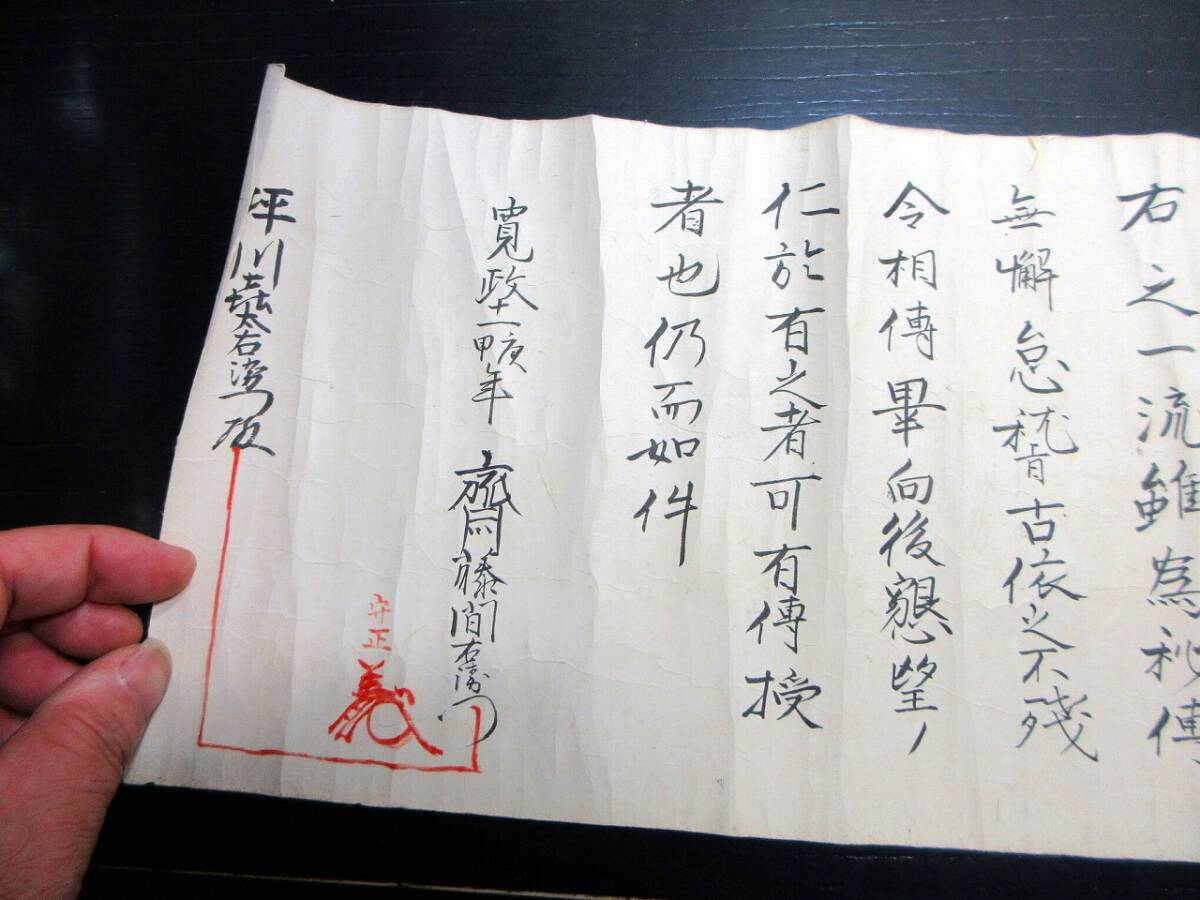 右之一流雖為秘傳
無懈怠稽古依之不殘
令相傳畢向後懇望ノ
仁於有之者可有傳授
者也仍而如件
寛政十二庚申年
齋藤間右衛門
守正
坪川太右衛門殿